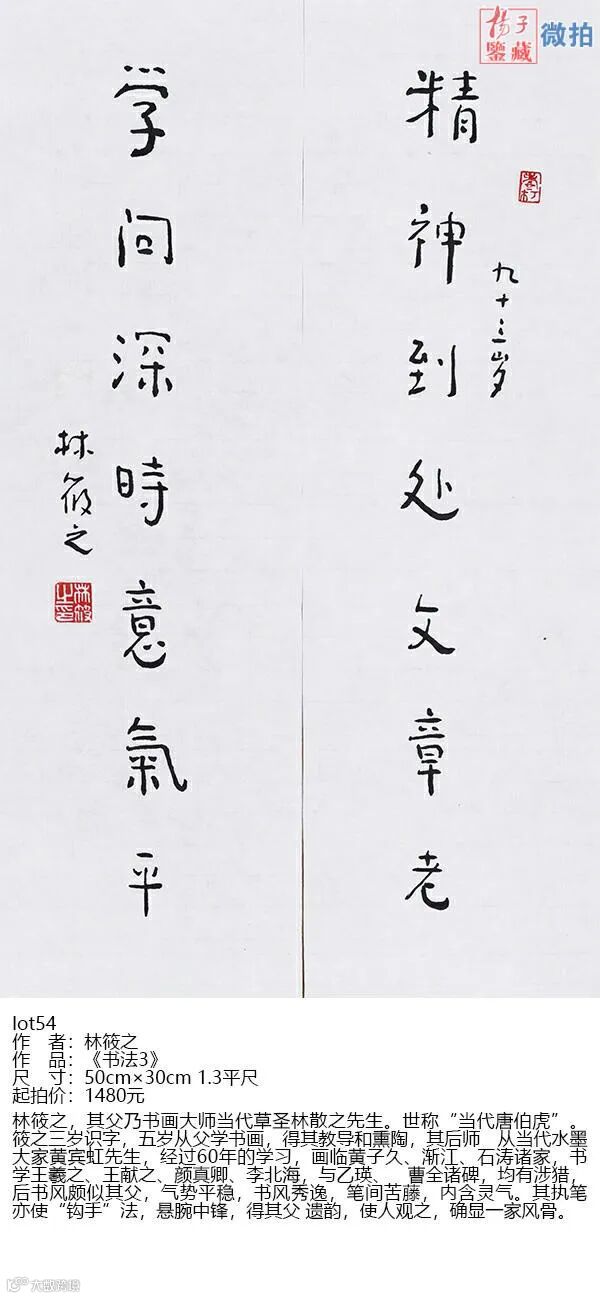 楊子
鑒藏
微拍
精神到处文章老
九十三岁
学问深時意氣平
林筱之
林筱之印
lot54
作 者：林筱之
作 品：《书法3》
尺 寸：50cm×30cm 1.3平尺
起拍价：1480元
林筱之，其父乃书画大师当代草圣林散之先生。世称“当代唐伯虎”。
筱之三岁识字，五岁从父学书画，得其教导和熏陶，其后师 从当代水墨
大家黄宾虹先生，经过60年的学习，画临黄子久、渐江、石涛诸家，书
学王羲之、王献之、颜真卿、李北海，与乙瑛、 曹全诸碑，均有涉猎，
后书风颇似其父，气势平稳，书风秀逸，笔间苦藤，内含灵气。其执笔
亦使“钩手”法，悬腕中锋，得其父 遗韵，使人观之，确显一家风骨。
大数跨境